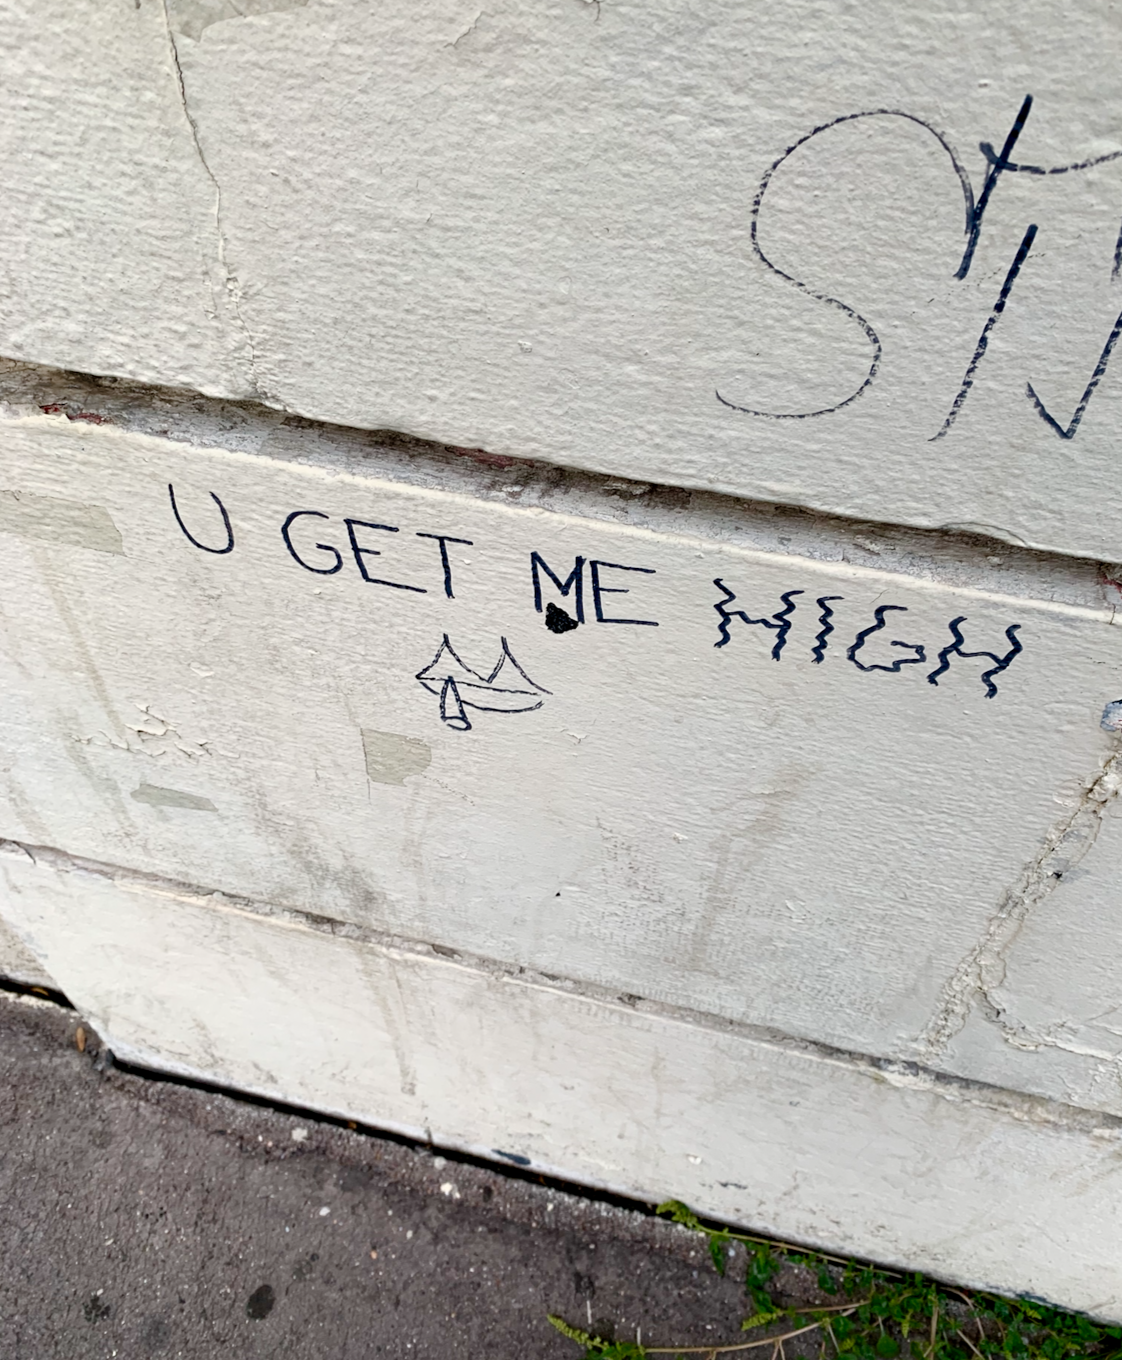 U GET ME HIGH